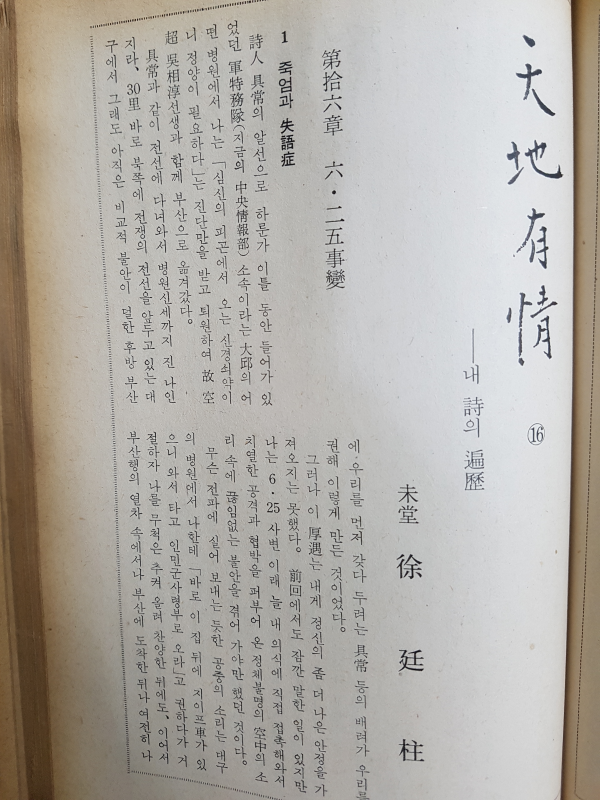 天地有情
⑯
──내 詩의 遍歷
未堂 徐廷柱
第拾六章 六·二五事變
1 죽엄과 失語症
詩人 具常의 알선으로 하룬가 이틀 동안 들어가 있
었던 軍特務隊(지금의 中央情報部) 소속이라는 大邱의 어
떤 병원에서 나는 「심신의 피곤에서 오는 신경쇠약이
니 정양이 필요하다」는 진단만을 받고 퇴원하여 故 空
超 吳相淳선생과 함께 부산으로 옮겨갔다.
具常과 같이 전선에 다녀와서 병원신세까지 진 나인
지라, 30里 바로 북쪽에 전쟁의 전선을 앞두고 있는 대
구에서 그래도 아직은 비교적 불안이 덜한 후방 부산
에 우리를 먼저 갖다 두려는 具常 등의 배려가 우리를
권해 이렇게 만든 것이었다.
그러나 이 厚遇는 내게 정신의 좀 더 나은 안정을 가
져오지는 못했다. 前回에서도 잠깐 말한 일이 있지만
나는 6·25 사변 이래 늘 내 의식에 직접 접촉해와서
치열한 공격과 협박을 퍼부어 온 정체불명의 空中의 소
리 속에 끊임없는 불안을 겪어 가야만 했던 것이다.
무슨 전파에 실어 보내는 듯한 공중의 소리는 대구
의 병원에서 나한테 「바로 이 집 뒤에 지이프車가 있
으니 와서 타고 인민군사령부로 오라」고 권하다가 거
절하자 나를 무척은 추켜 올려 찬양한 뒤에도, 이어서
부산행의 열차 속에서나 부산에 도착한 뒤나 여전히 나